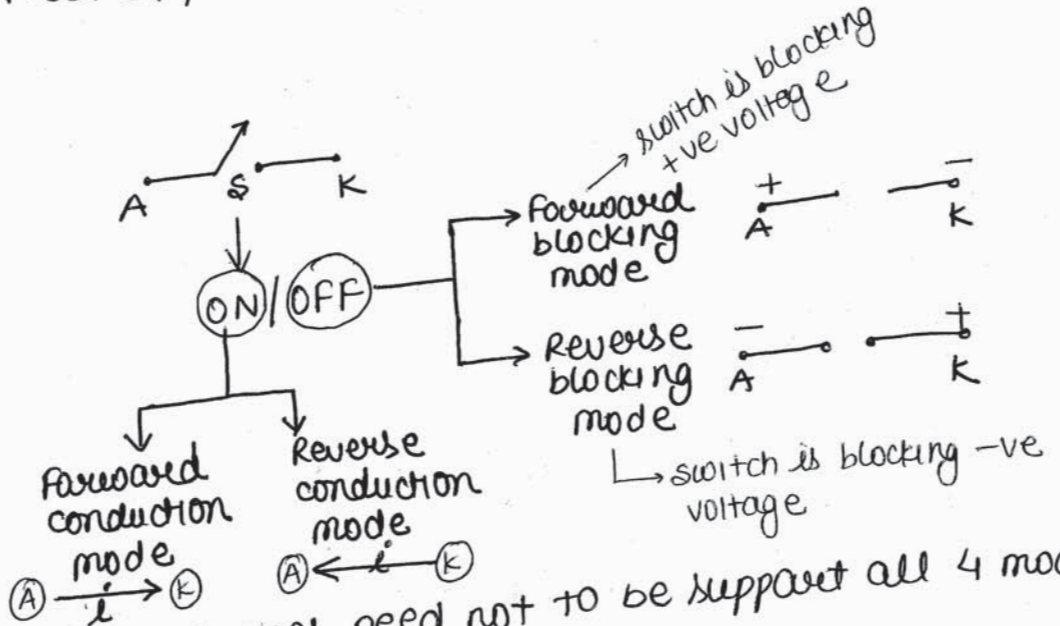 switch is blocking
+ve voltage
A S K
ON / OFF
Forward
blocking
mode
+ −
A K
Reverse
blocking
mode
− +
A K
switch is blocking -ve
voltage
Forward
conduction
mode
A i K
Reverse
conduction
mode
A i K
need not to be support all 4